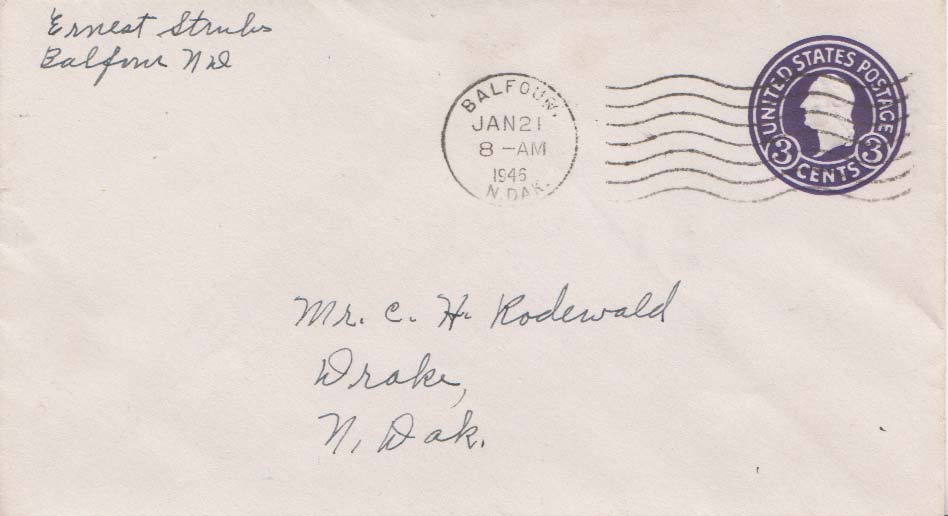 Ernest Strubs
Balfour ND
BALFOUR,
JAN 21
8 - AM
1946
N. DAK.
UNITED STATES POSTAGE
3 CENTS 3
Mr. C. H. Rodewald
Drake,
N. Dak.